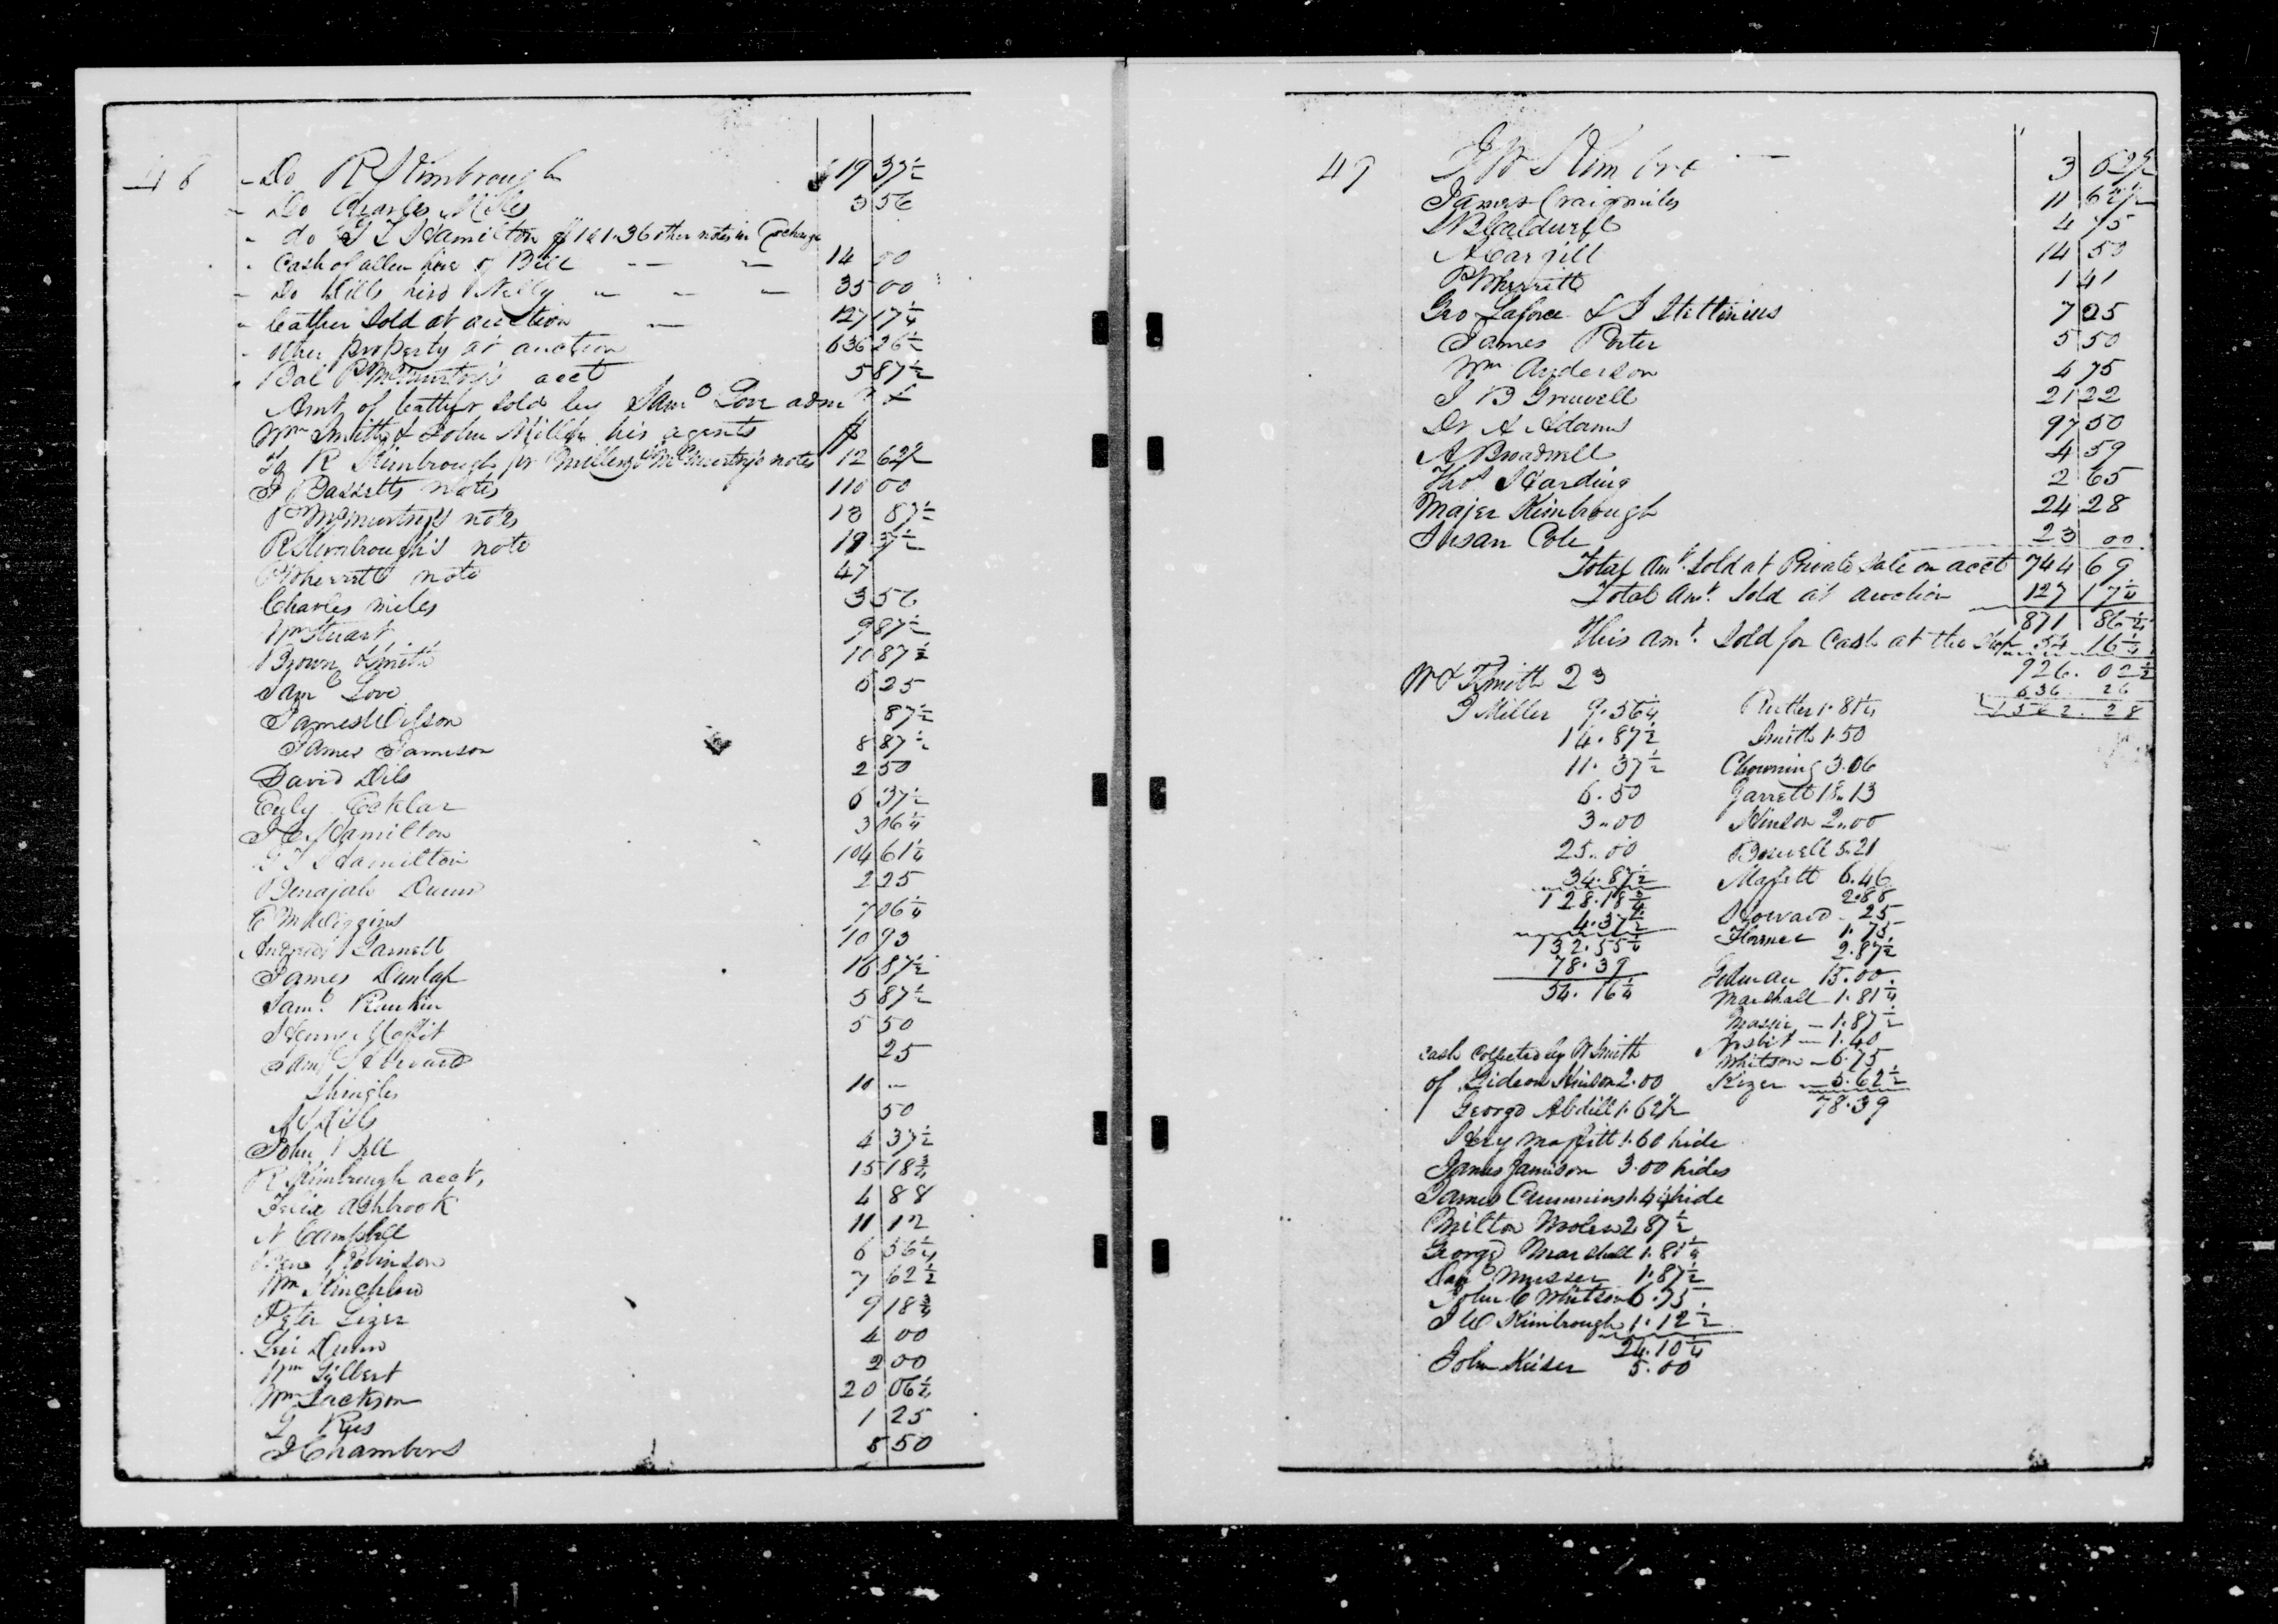 46
- Do R Kimbrough $ 19 37½
- Do Charles Miles 3 56
- do G T Hamilton of 141.36 other notes in Exchange
- Cash of Allen hire of Bill 14 00
- Do Dills hire Nelly 35 00
- leather Sold at auction 127 17¼
- other property at auction 636 26½
- Bal P McMurtry's acct 5 87½
Amt of leather sold by Saml Love adm
Wm Smith & John Miller his agents $
To R Kimbrough for Miller & McMurtry's notes 12 62½
Bassetts notes 110 00
P McMurtry's notes 13 87½
R Kimbrough's note 19 37½
P Wherritt note 47
Charles miles 3 56
Wm Stuart 9 87½
Brown Smith 10 87½
Saml Love 5 25
James Wilson 87½
James Jameson 8 87½
David Dils 2 50
Ecklar 6 37½
Hamilton 3 06¼
G T Hamilton 104 61¼
Benajah Dunn 2 25
E M Wiggins 7 06¼
Garnett 10 93
James Dunlap 16 87½
Saml Rankin 5 87½
Henry Moffit 5 50
Saml Howard 25
Shingles 10 -
Dils 50
John Bell 4 37½
R Kimbrough acct, 15 18¾
Felix Ashbrook 4 88
N Campbell 11 12
Robinson 6 56¼
Wm Hinchlow 7 62½
Peter Lizer 9 18¾
Dunn 4 00
Wm Gilbert 2 00
Wm Jackson 20 06½
Rees 1 25
J Chambers 5 50
47
3 62½
James Craigmiles 11 62½
Caldwell 4 75
A Cargill 14 50
P Wherritt 1 41
Geo Laforce & J Stettinius 7 25
James Porter 5 50
Wm Anderson 4 75
J B Gruwell 21 22
Dr A Adams 97 50
A Broadwell 4 59
Thos Harding 2 65
Majer Kimbrough 24 28
Susan Cole 23 00
Total Amt. Sold at Private Sale on acct 744 69
Total Amt. Sold at auction 127 17¼
871 86¼
This amt. Sold for Cash at the Shop 54 16¼
926. 02½
636. 26
1562. 28
W & T Smith 23
J Miller 9.56¼ Rutter 1.81¼
14.87½ Smith 1.50
11.37½ Chowning 3.06
6.50 Garrett 18.13
3.00 Hinson 2.00
25.00 Boswell 5.21
34.87½ Maffett 6.46
128.18¾ 2.88
4.37½ Howard 25
132.55¼ Horner 1.75
78.39 2.87½
54.16¼ Gedman 15.00
Marshall 1.81¼
Massie - 1.87½
Nesbit - 1.40
Whitson - 6.75
Kizer - 5.62½
78.39
Cash Collected by W Smith
of Gideon Hinson 2.00
George Abdill 1.62½
Hery Maffitt 1.60 hide
James Jamison 3.00 hides
James Cummins 1.44 hide
Milton Moler 2.87½
George Marshall 1.81¼
Musser 1.87½
John C Whitson 6.75
J W Kimbrough 1.12½
24.10¼
John Keiser 5.00